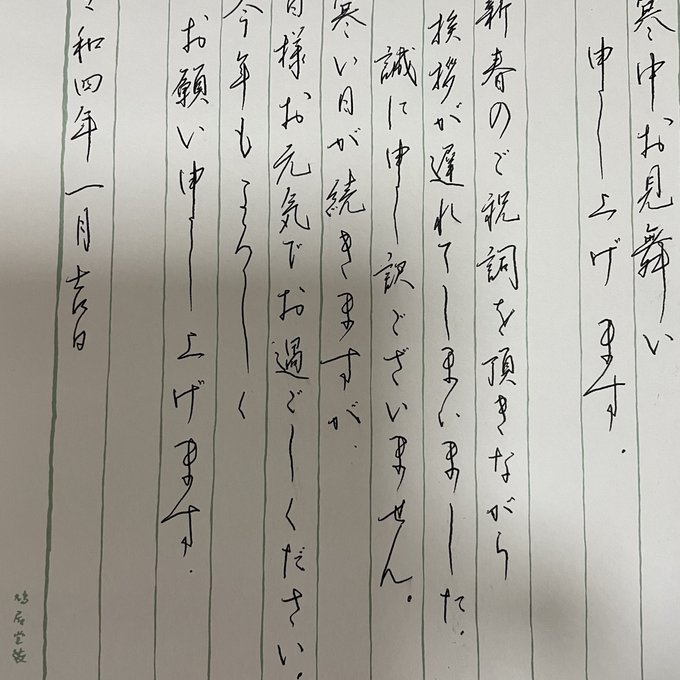 寒中お見舞い
申し上げます.
新春のご祝詞を頂きながら
挨拶が遅れてしまいました.
誠に申し訳ございません.
寒い日が続きますが.
皆様お元気でお過ごしください.
今年もよろしく
お願い申し上げます.
令和四年一月吉日
鳩居堂製